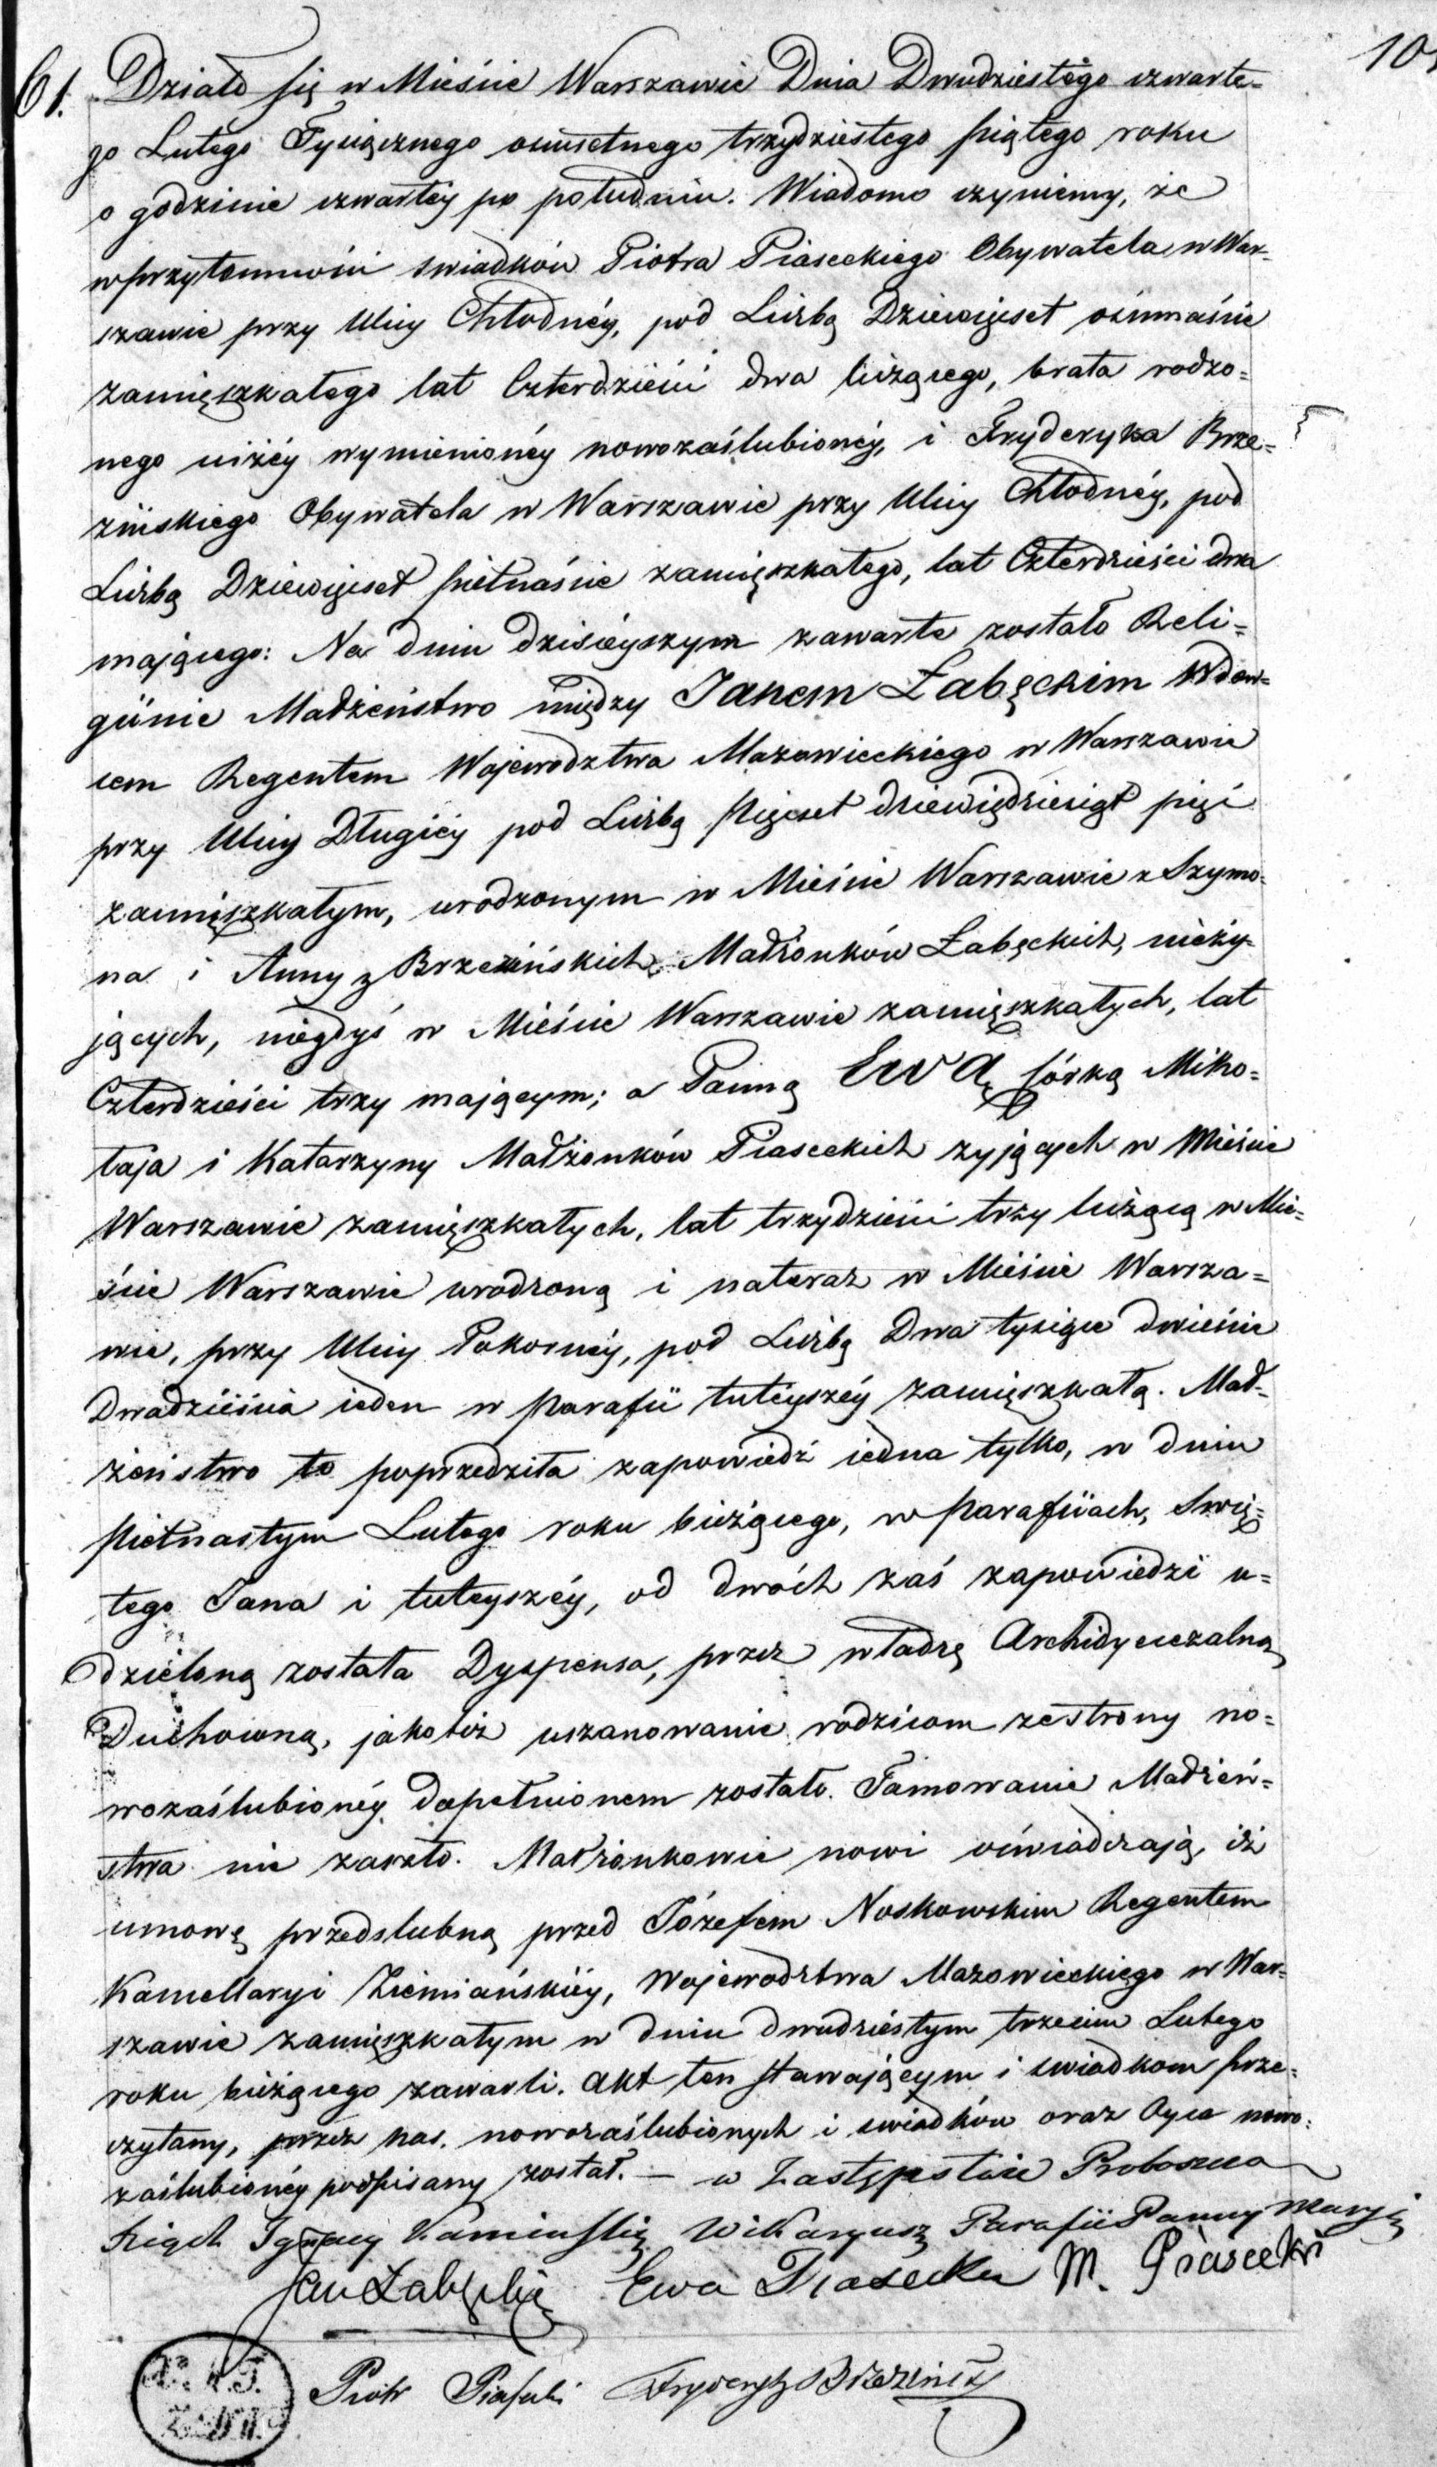 61. Działo się w Mieście Warszawie Dnia Dwudziestego czwarte-
go Lutego Tysiącznego ośmsetnego trzydziestego piątego roku
o godzinie czwartéy po południu. Wiadomo czyniemy, że
w przytomności swiadków Piotra Piaseckiego Obywatela w War-
szawie przy Ulicy Chłodnéy, pod Liczbą Dziewięcset ośmnaście
zamięszkałego lat Czterdzieści dwa liczącego, brata rodzo=
nego niżéy wymienionéy nowozaślubionéy, i Fryderyka Brze=
zińskiego Obywatela w Warszawie przy Ulicy Chłodnéy, pod
Liczbą Dziewięcset piętnaście zamięszkałego, lat Czterdzieści dwa
mającego: Na dniu dzisieyszym zawarte zostało Reli=
giinie Małżeństwo między Janem Łabęckim Wdow=
cem Regentem Województwa Mazowieckiego w Warszawie
przy Ulicy Długiéy pod Liczbą pięcset dziewięcdziesiąt pięć
zamięszkałym, urodzonym w Mieście Warszawie z Szymo-
na i Anny z Brzezińskich, Małżonków Łabęckich, nieży-
jących, niegdyś w Mieście Warszawie zamięszkałych, lat
Czterdzieści trzy mającym; a Panną Ewą córką Miko=
łaja i Katarzyny Małżonków Piaseckich żyjących w Mieście
Warszawie zamięszkałych, lat trzydzieści trzy liczącą w Mie=
ście Warszawie urodzoną i nateraz w Mieście Warsza=
wie, przy Ulicy Pokornéy, pod Liczbą Dwa tysiące dwieście
Dwadzieścia ieden w parafii tuteyszéy zamięszkałą. Mał-
żeństwo to poprzedziła zapowiedź iedna tylko, w dniu
piętnastym Lutego roku bieżącego, w parafiiach, Swię=
tego Jana i tuteyszéy, od dwóch zaś zapowiedzi u=
dzieloną została Dyspensa, przez władzę Archidyecezalną
Duchowną, jakoteż uszanowanie rodzicom ze strony no=
wozaślubionéy dopełnionem zostało. Tamowanie Małżeń=
stwa nie zaszło. Małżonkowie nowi oświadczają, iż
umowę przedslubną przed Józefem Noskowskim Regentem
Kancellaryi Ziemiańskiéy, Województwa Mazowieckiego w War-
szawie zamięszkałym w dniu dwudziestym trzecim Lutego
roku bieżącego zawarli. Akt ten stawającym i swiadkom prze=
czytany, przez nas, nowozaślubionych i swiadków oraz Oyca nowo=
zaślubionéy podpisany został. — w Zastępstwie Proboszcza
Xiądz Ignacy Kamiński Wikaryusz Parafii Panny Maryi
Jan Łabęcki Ewa Piasecka M. Piasecki
Piotr Piasecki Fryderyk Brzeziński